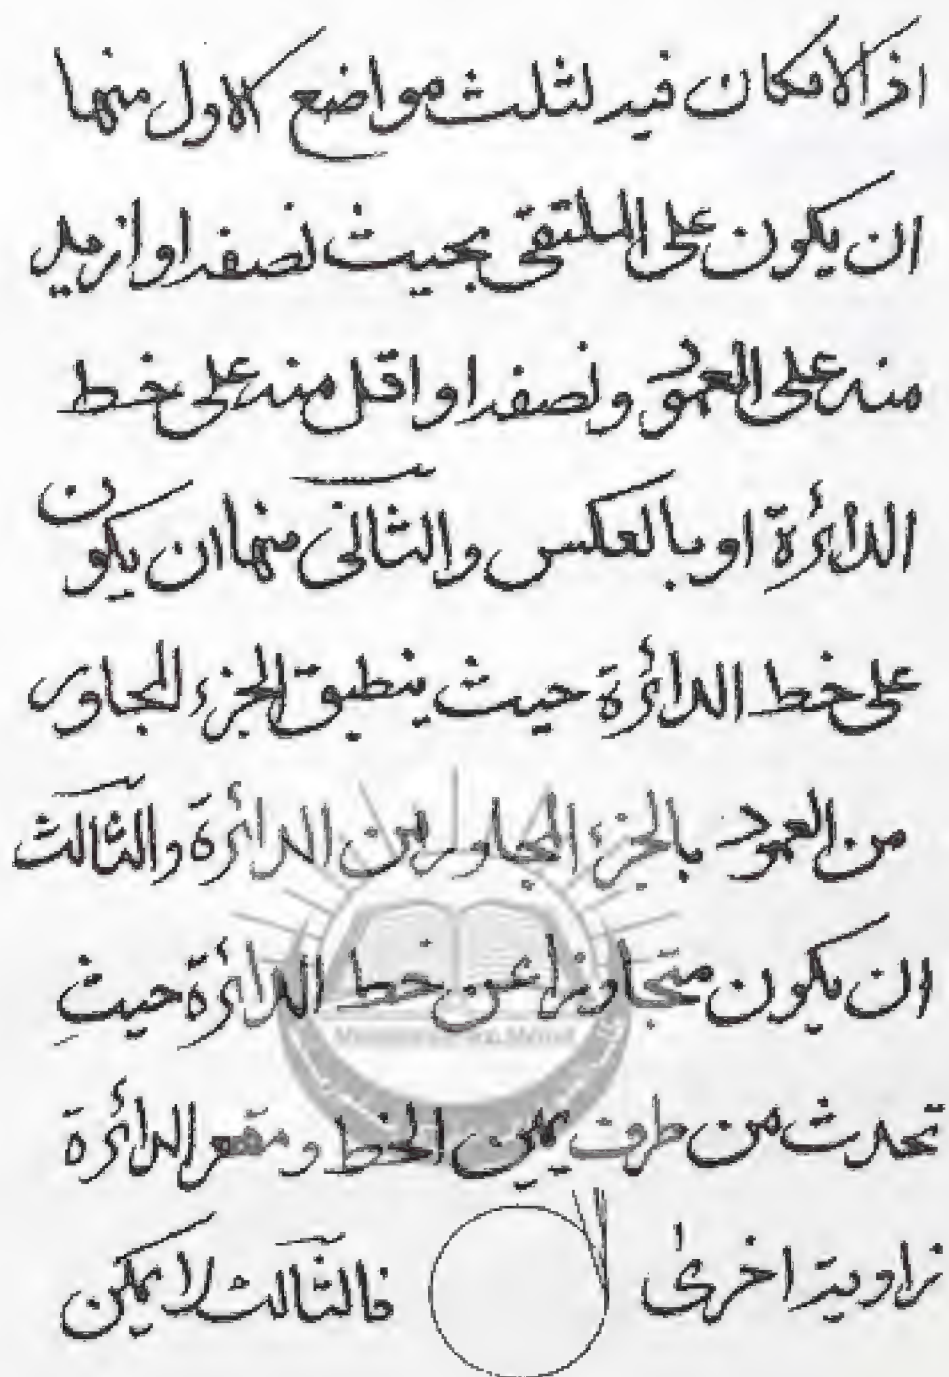 اذ الامكان فيه لثلث مواضع الاول منها
ان يكون على الملتقى بحيث نصفه او ازيد
منه على العمود ونصفه او اقل منه على خط
الدائرة او بالعكس والثانى منها ان يكون
على خط الدائرة حيث ينطبق الجزء المجاور
من العمود بالجزء المجاور من الدائرة والثالث
ان يكون متجاوزا عن خط الدائرة حيث
تحدث من طرف يمين الخط ومقعر الدائرة
زاوية اخرى فالثالث لا يمكن